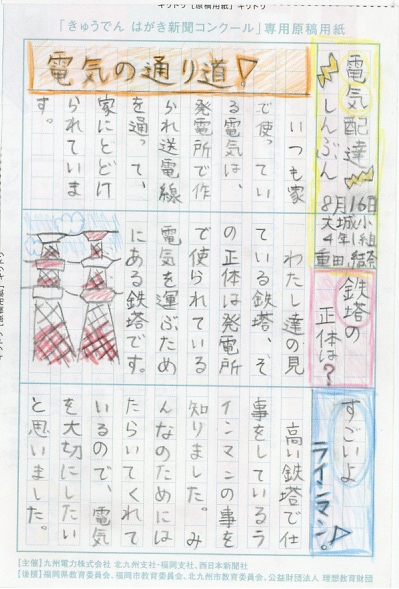 キリトリ［原稿用紙］キリトリ
「きゅうでん はがき新聞コンクール」専用原稿用紙
電気配達
しんぶん
8月16日
大城小
4年1組
重田
電気の通り道!
いつも家
で使ってい
る電気は、
発電所で作
られ送電線
を通って、
家にとどけ
られていま
す。
鉄塔の
正体は?
わたし達の見
ている鉄塔、そ
の正体は発電所
で使られている
電気を運ぶため
にある鉄塔です。
すごいよ
ラインマン!
高い鉄塔で仕
事をしているラ
インマンの事を
知りました。み
んなのためには
たらいてくれて
いるので、電気
を大切にしたい
と思いました。
【主催】九州電力株式会社 北九州支社・福岡支社、西日本新聞社
【後援】福岡県教育委員会、福岡市教育委員会、北九州市教育委員会、公益財団法人 理想教育財団